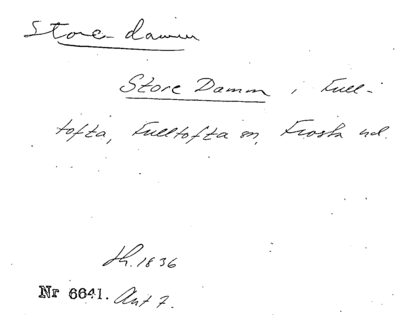 Store damm
Store Damm, i Full-
tofta, Fulltofta sn, Frosta hd.
1836
Nr 6641. Ant 7.